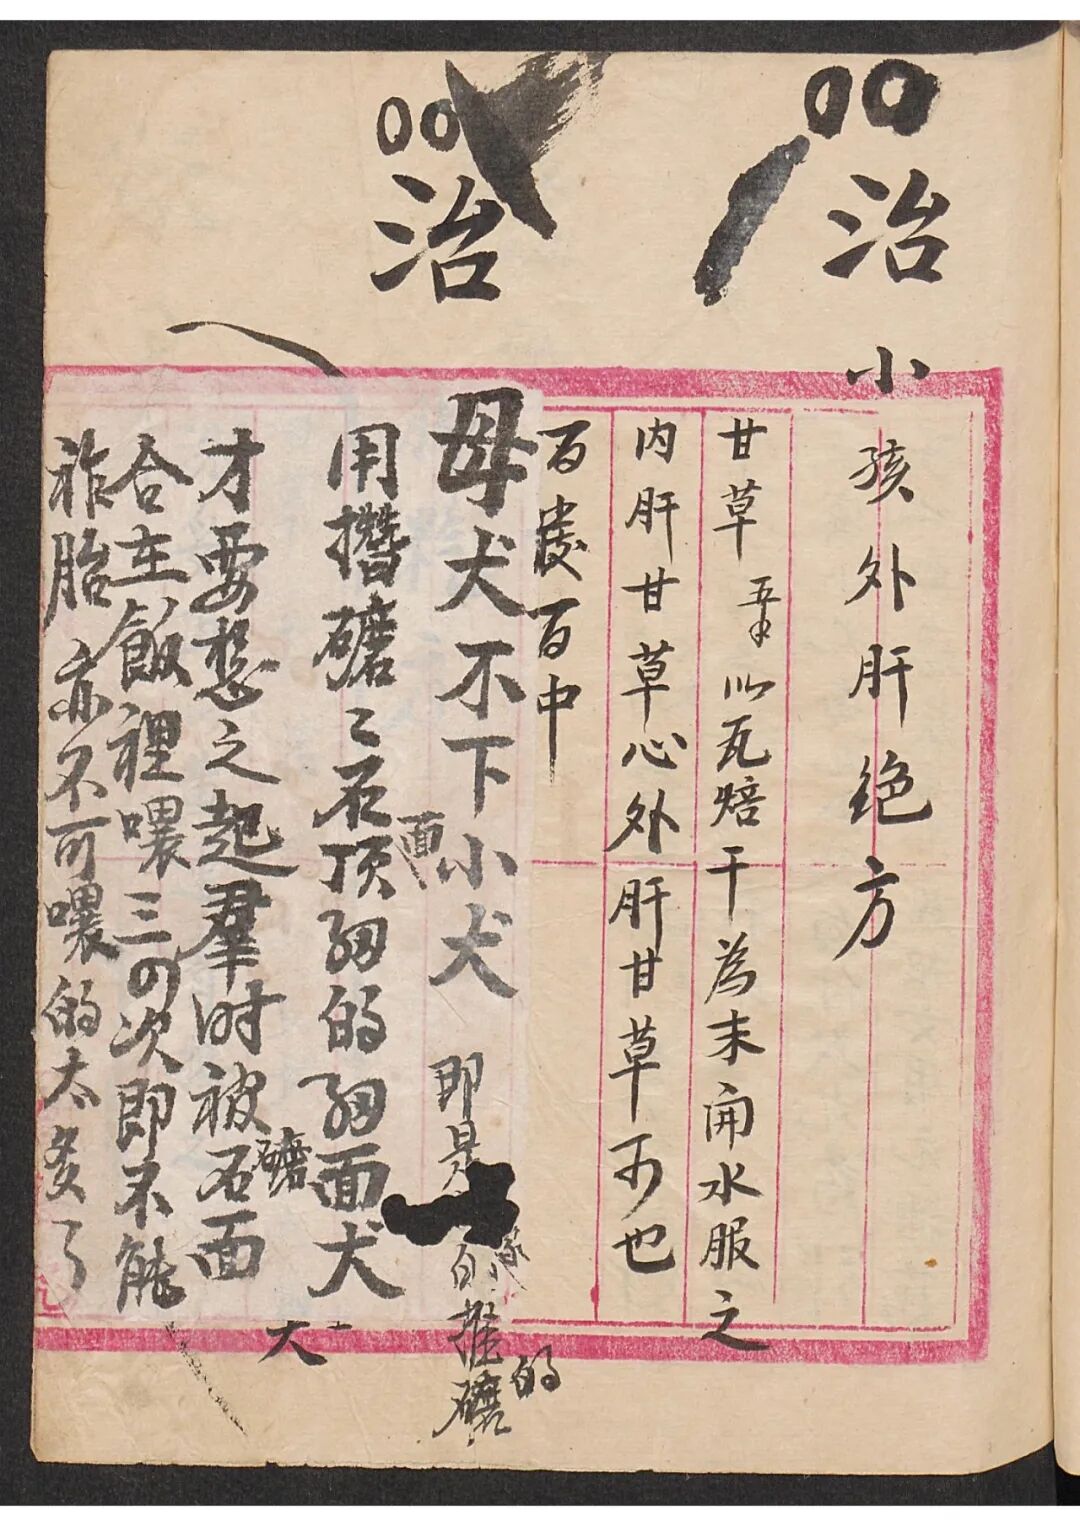 治小
孩外肝绝方
甘草 五个 以瓦焙干為末開水服之
内肝甘草心外肝甘草可也
百發百中
治
母犬不下小犬 即是 的推磨的
用攢磨々石頂細的細面犬
面
才要想之起羣时被石面
磨
大
合在飯裡喂三四次即不能
祚胎亦不可喂的太多了